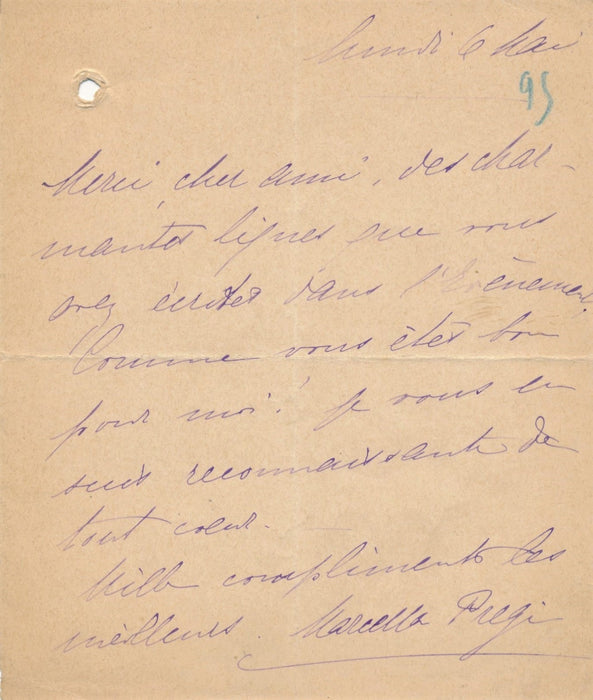 lundi 6 Mai
95
Merci, cher ami, des char-
mantes lignes que vous
avez écrites dans l'Evènement.
Comme vous êtes bon
pour moi! Je vous en
suis reconnaissante de
tout coeur.
Mille compliments les
meilleurs. Marcella Pregi